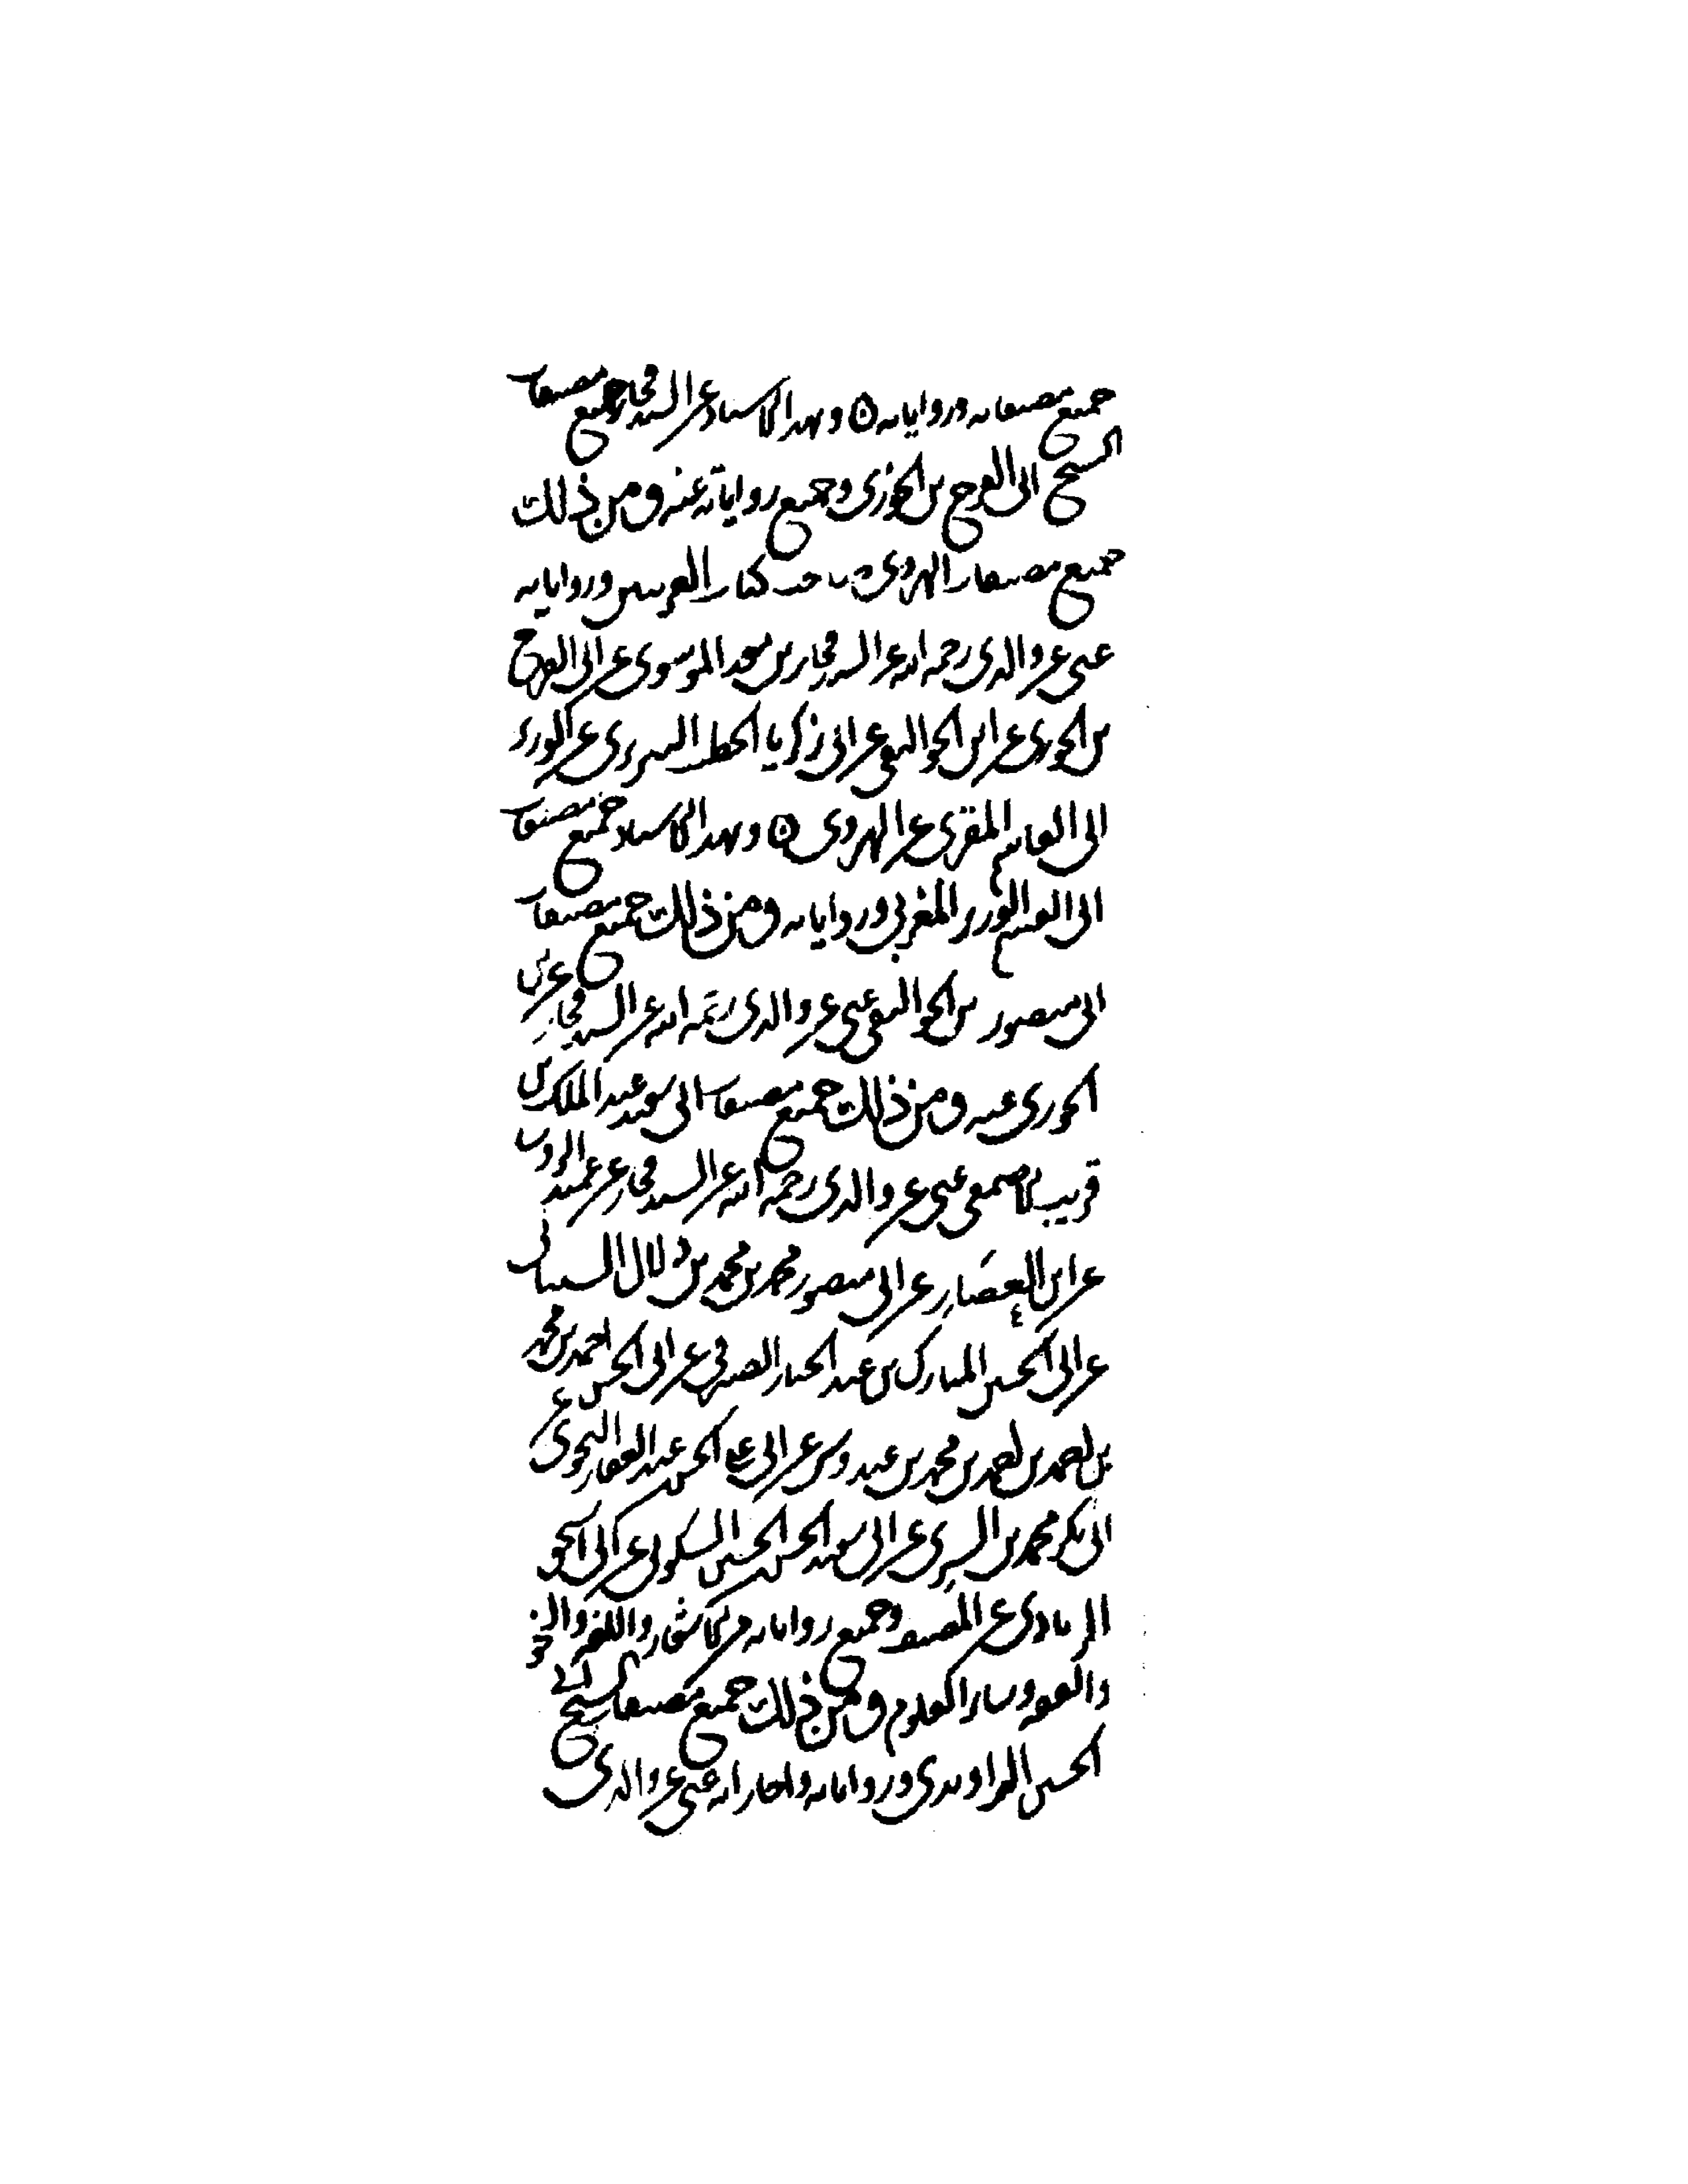 جميع مصنفاته ورواياته ه وبهذا الاسناد عن السيد فخار جميع مصنفات
الشيخ ابى الفرج بن الجوزى وجميع رواياته عنه ومن ذلك
جميع مصنفات الهروى صاحب كتاب الغريبين ورواياته
عنى عن والدى رحمه الله عن السيد فخار بن معد الموسوى عن ابى الفرج
بن الجوزى عن ابن الجواليقى عن ابى زكريا الخطيب التبريزى عن الوزير
ابى القاسم المقرى عن الهروى ه وبهذا الاسناد جميع مصنفات
ابى القسم الوزير المغربى ورواياته ومن ذلك جميع مصنفات
ابى منصور بن الجواليقى عنى عن والدى رحمه الله عن السيد فخار عن بن
الجوزى عنه ومن ذلك جميع مصنفات ابى سعيد عبد الملك بن
قريب الاصمعى عنى عن والدى رحمه الله عن السيد فخار عن عميد الروسا
عن ابن العصار عن ابى منصور محمد بن محمد بن دلال الشيبانى
عن ابى الحسين المبارك بن عبد الجبار الصيرفى عن ابى الحسن احمد بن محمد
بن احمد بن احمد بن محمد بن عبدوس عن ابى على الحسن عبد الغفار النحوى عن
ابى بكر محمد بن السرى عن ابى سعيد الحسن الحسين السكونى عن ابى اسحق
الزيادى عن المصنف وجميع رواياته من الاشعار واللغه والنحو
والفقه وساير العلوم ومن ذلك جميع مصنفات الشيخ ابى
الحسين الراوندى ورواياته واجازاته عنى عن والدى